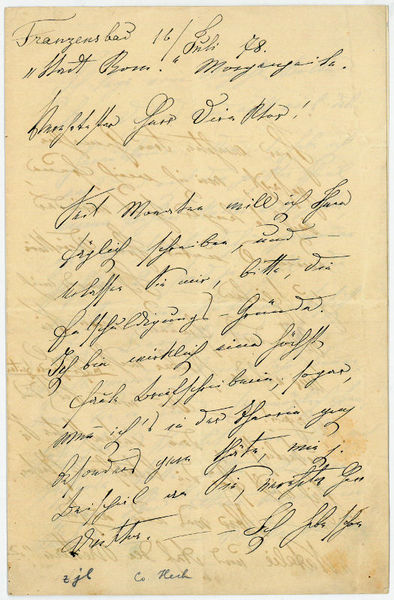 Franzensbad 16/ Juli 78.
"Stadt Rom." Morgenzeile.
Verehrtester Herr Direktor!
Seit Monaten will ich Ihnen
täglich schreiben, und –
erlassen Sie mir, bitte, die
Entschuldigungs-Gründe.
Ich bin wirklich eine höchst
faule Briefschreiberin, sogar,
wenn ich's in der Theorie ganz
besonders gern thäte, wie z.
Beispiel an Sie, verehrter Herr
Direktor. – Ich habe schon
zjl Co Heck